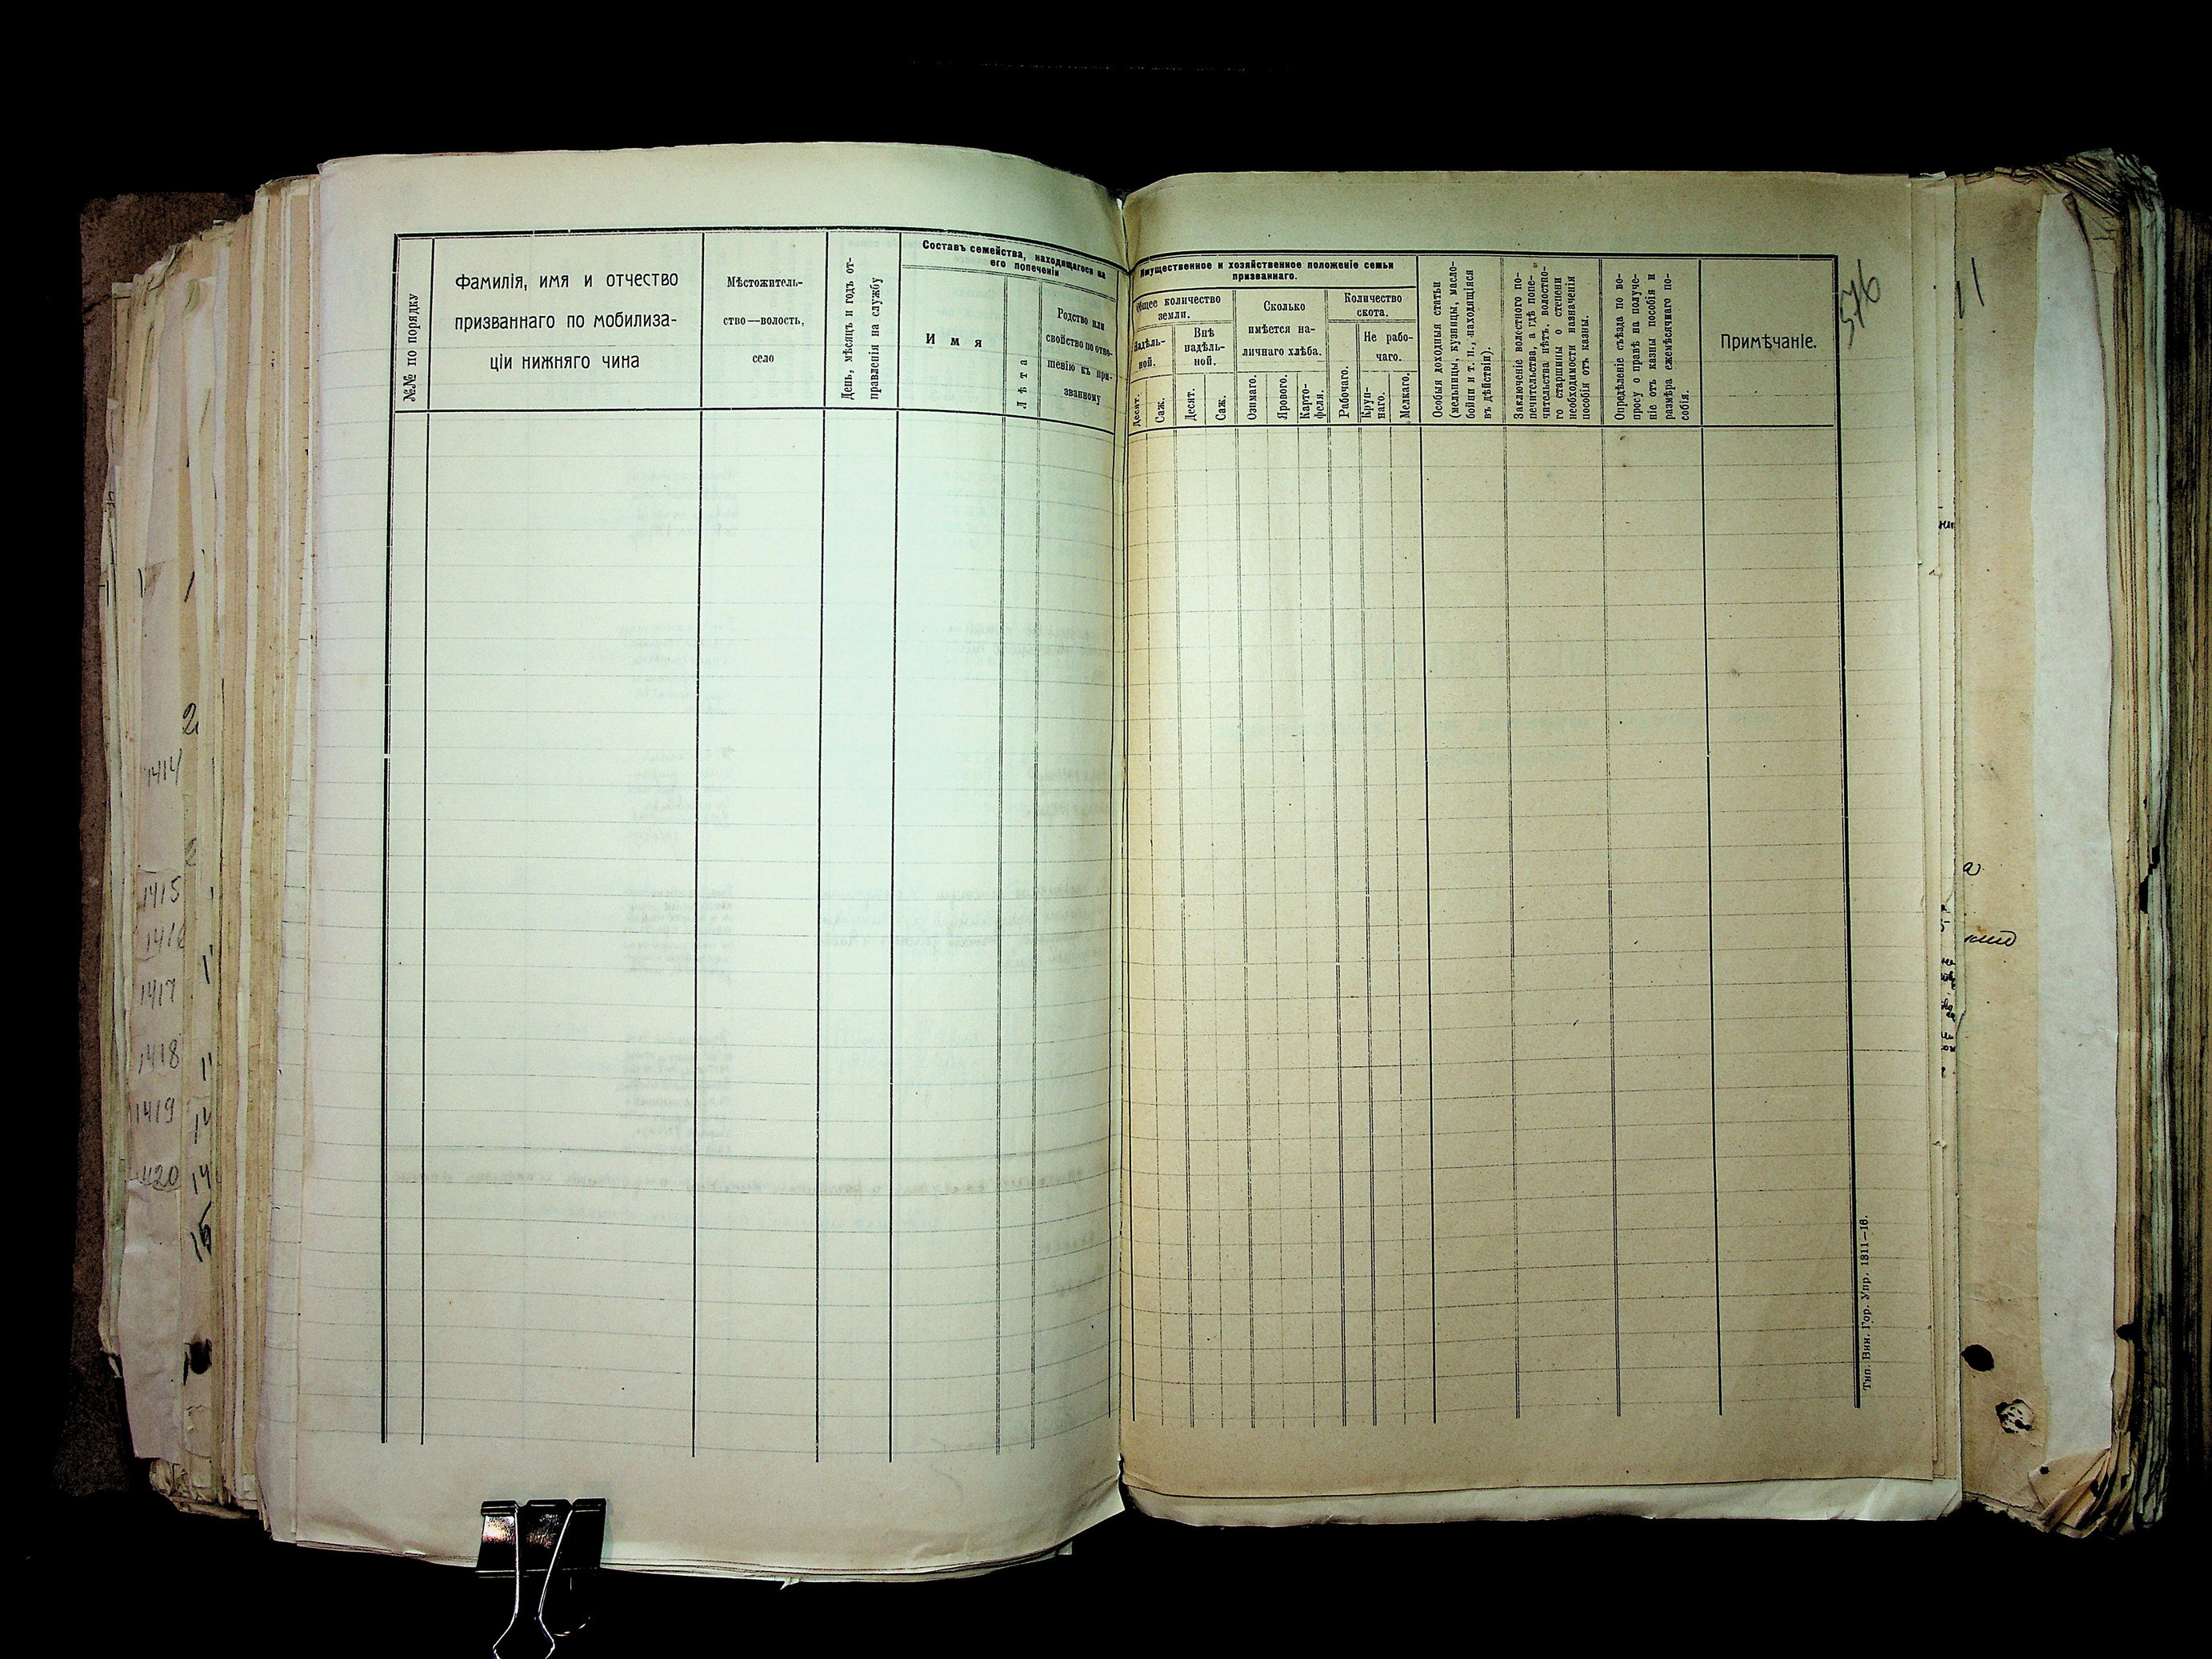 №№ по порядку
Фамилія, имя и отчество
призваннаго по мобилиза-
ціи нижняго чина
Мѣстожитель-
ство—волость,
село
День, мѣсяцъ и годъ от-
правленія на службу
Составъ семейства, находящагося на
его попеченіи
Имя
Лѣта
Родство или
свойство по отно-
шенію къ при-
званному
Имущественное и хозяйственное положеніе семьи
призваннаго.
Общее количество
земли.
Надѣль-
ной.
Десят.
Саж.
Внѣ
надѣль-
ной.
Десят.
Саж.
Сколько
имѣется на-
личнаго хлѣба.
Озимаго.
Ярового.
Карто-
феля.
Количество
скота.
Рабочаго.
Не рабо-
чаго.
Круп-
наго.
Мелкаго.
Особыя доходныя статьи
(мельницы, кузницы, масло-
бойни и т. п., находящіяся
въ дѣйствіи).
Заключеніе волостного по-
печительства, а гдѣ попе-
чительства нѣтъ, волостно-
го старшины о степени
необходимости назначенія
пособія отъ казны.
Опредѣленіе съѣзда по во-
просу о правѣ на получе-
ніе отъ казны пособія и
размѣра ежемѣсячнаго по-
собія.
Примѣчаніе.
576
11
Тип. Вин. Гор. Упр. 1811—16.
2
1414
2
1415
1416
1417
1418
11
1419
14
1420
14
15